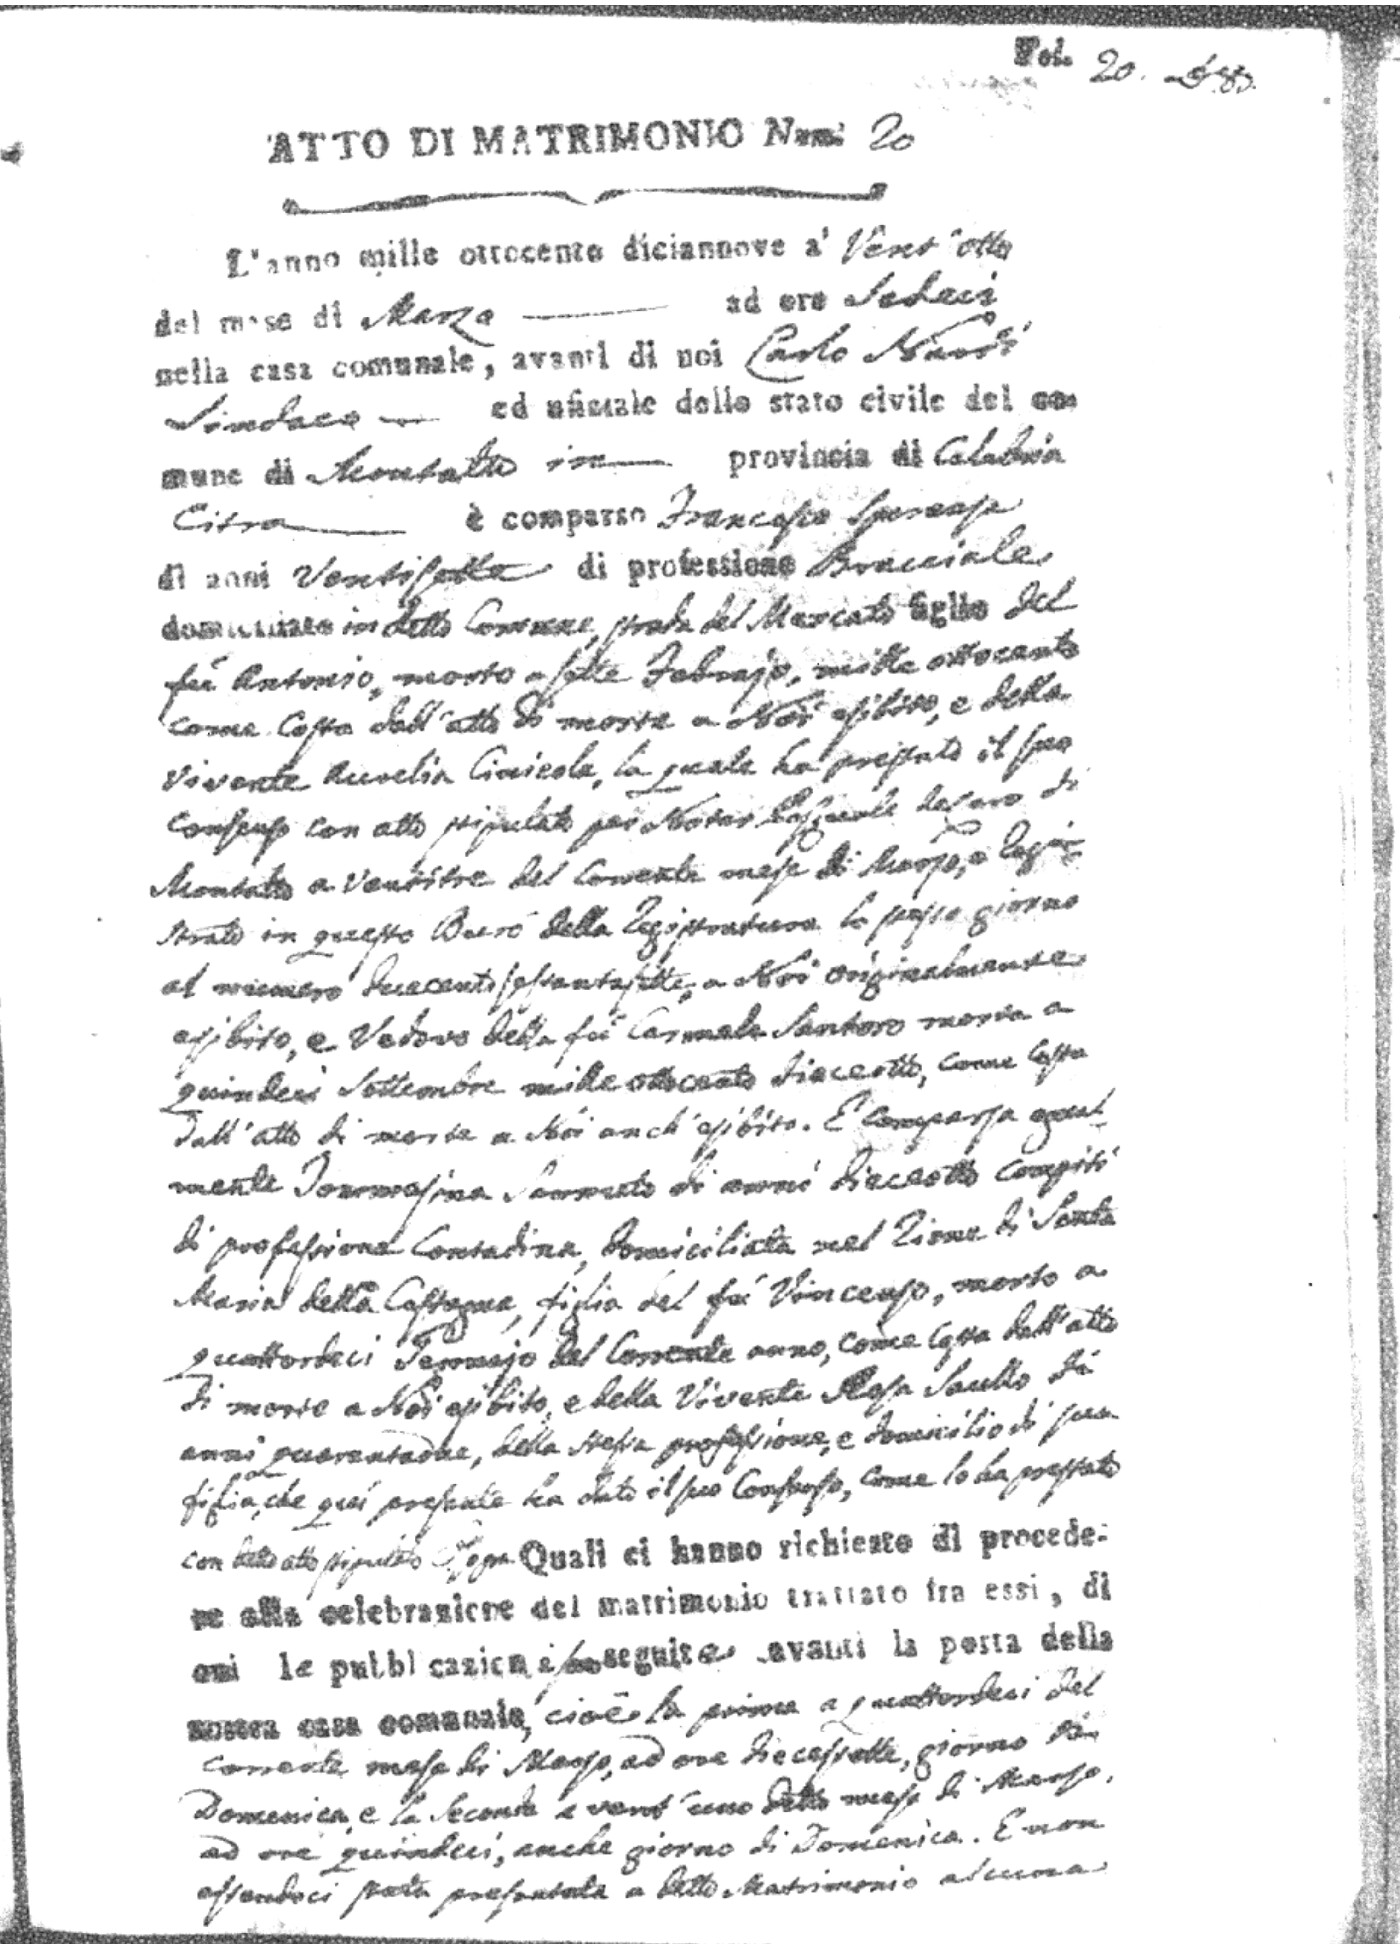 Fol. 20.
ATTO DI MATRIMONIO Num. 20
L'anno mille ottocento diciannove a' Vent'otto
del mese di Marzo ad ore Sedeci
nella casa comunale, avanti di noi Carlo Nardi
Sindaco ed ufficiale dello stato civile del co-
mune di Montalto in provincia di Calabria
Citra è comparso Francesco Sperensa
di anni Ventisette di professione Bracciale
domiciliato in detto Comune, strada del Mercato figlio del
fù Antonio, morto a sette Febrajo, mille ottocento
come Costa dall'atto di morte a Noi esibito, e della
vivente Aurelia, la quale ha prestato il suo
Consenso con atto stipulato per Notar Pasquale de Caro di
Montalto a Ventitre del Corrente mese di Marzo, e Regi-
strato in questo Burò della Registratura lo stesso giorno
al numero duecento sessantasette, a Noi originalmente
esibito, e Vedovo della fù Carmela Santoro morta a
quindeci Settembre mille ottocento dieceotto, come Costa
dall'atto di morte a Noi anch'esibito. E' Comparsa egual-
mente Tommasina Sannuto di anni dieceotto compiti
di professione Contadina, domiciliata nel Rione di Santa
Maria della Castagna, figlia del fù Vincenzo, morto a
quattordeci Jennajo del Corrente anno, come Costa dall'atto
di morte a Noi esibito, e della Vivente Rosa Saullo di
anni quarantadue, della stessa professione, e domicilio di sua
figlia, che quì presente ha dato il suo Consenso, come lo ha prestato
con detto atto stipulato sopra Quali ci hanno richiesto di procede-
re alla celebrazione del matrimonio trattato fra essi, di
cui le pubblicazioni sono seguite avanti la porta della
nostra casa comunale, cioè la prima a quattordeci del
corrente mese di Marzo, ad ore diecessette, giorno di
Domenica, e la Seconda a vent'uno detto mese di Marzo,
ad ore quindeci, anche giorno di Domenica. E non
essendoci stata presentata a detto Matrimonio alcuna